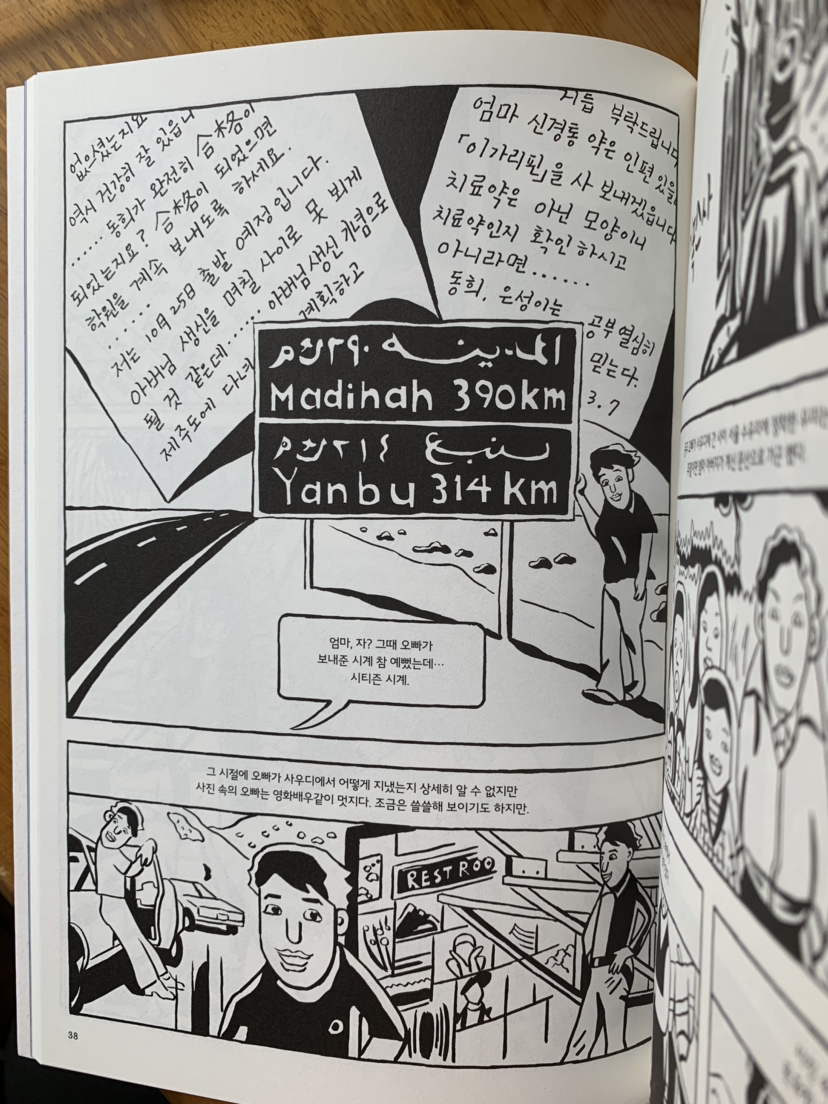 없으셨는지요
역시 건강히 잘 있읍니
...... 동희가 완전히 合格이
되었는지요? 合格이 되었으면
학원을 계속 보내도록 하세요.
......
저는 10月 25日 출발 예정입니다.
아버님 생신을 며칠 사이로 못 뵈게
될 것 같은데...... 아버님 생신 기념으로
제주도에 다녀 계획하고
거듭 부탁드립니다
엄마 신경통 약은 인편 있을
「이가리핀」을 사 보내겠읍니다
치료약은 아닌 모양이니
치료약인지 확인하시고
아니라면......
동희, 은성이는 공부 열심히
믿는다.
3. 7
المدينه ٢٩٠كم
Madinah 390km
ينبع ٢١٤كم
Yanbu 314km
엄마, 자? 그때 오빠가
보내준 시계 참 예뻤는데…
시티즌 시계.
그 시절에 오빠가 사우디에서 어떻게 지냈는지 상세히 알 수 없지만
사진 속의 오빠는 영화배우같이 멋지다. 조금은 쓸쓸해 보이기도 하지만.
REST ROO
38